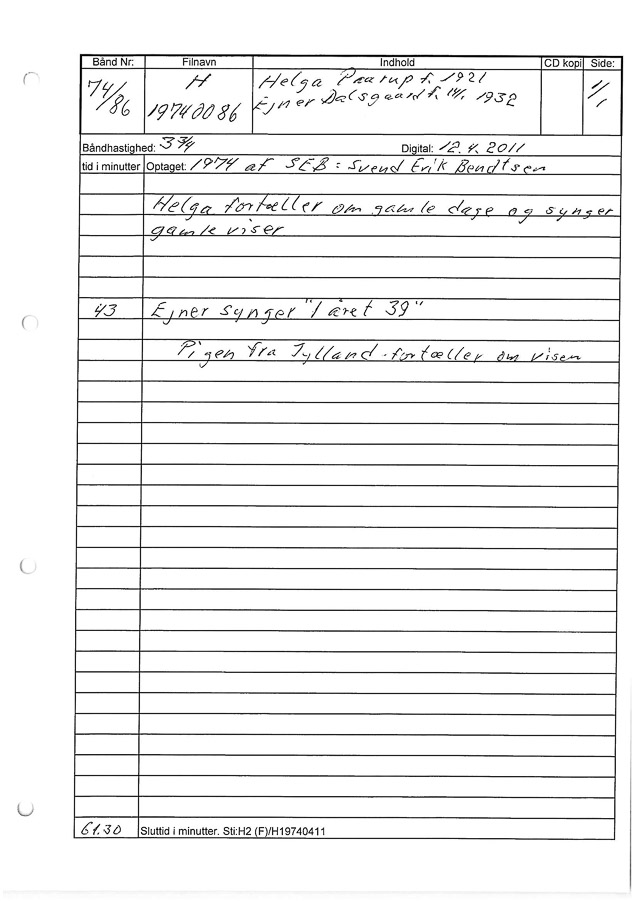 Bånd Nr: Filnavn Indhold CD kopi Side:
74/86 H Helga Paarup f. 1921 1/1
19740086 Ejner Dalsgaard f. 14/1 1932
Båndhastighed: 3 3/4 Digital: 12.4.2011
tid i minutter Optaget: 1974 af SEB: Svend Erik Bendtsen
Helga fortæller om gamle dage og synger
gamle viser
43 Ejner synger "I året 39"
Pigen fra Jylland - fortæller om visen
61.30 Sluttid i minutter. Sti:H2 (F)/H19740411